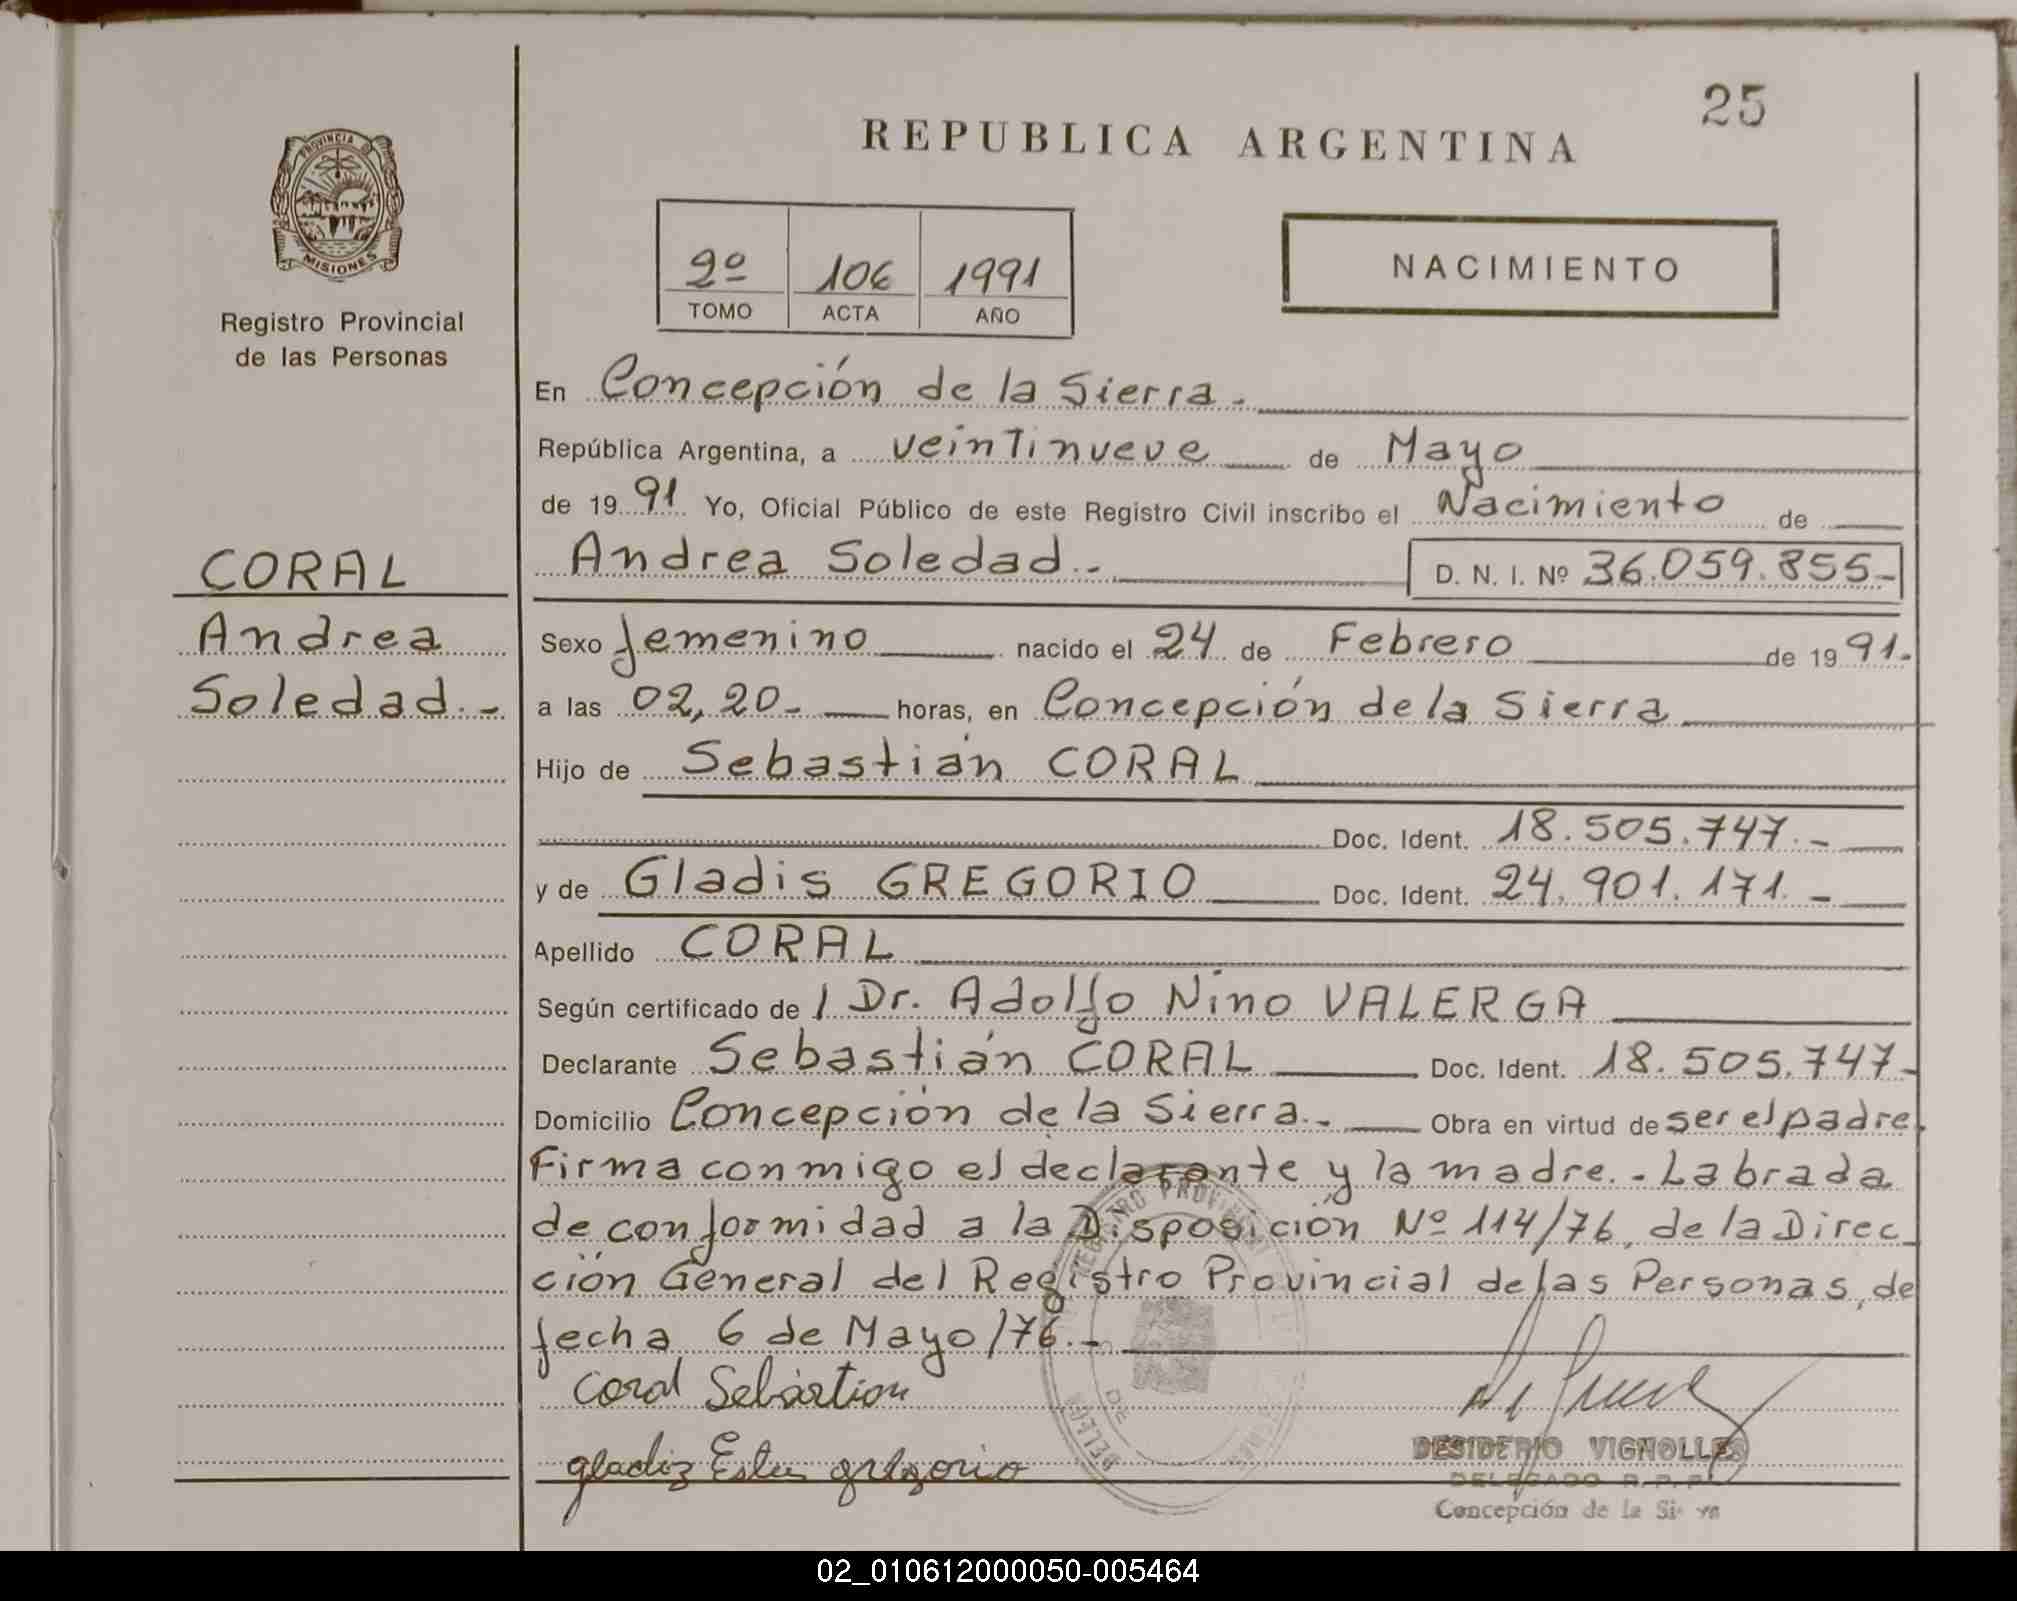 25
REPUBLICA ARGENTINA
PROVINCIA D
MISIONES
Registro Provincial
de las Personas
2º 106 1991
TOMO ACTA AÑO
NACIMIENTO
En Concepción de la Sierra.-
República Argentina, a veintinueve de Mayo
de 19 91 Yo, Oficial Público de este Registro Civil inscribo el Nacimiento de
Andrea Soledad.- D. N. I. Nº 36.059.855-
CORAL
Andrea
Soledad.-
Sexo femenino nacido el 24 de Febrero de 19 91.
a las 02,20- horas, en Concepción de la Sierra
Hijo de Sebastián CORAL
Doc. Ident. 18.505.747.-
y de Gladis GREGORIO Doc. Ident. 24.901.171.-
Apellido CORAL
Según certificado de / Dr. Adolfo Nino VALERGA
Declarante Sebastián CORAL Doc. Ident. 18.505.747-
Domicilio Concepción de la Sierra.- Obra en virtud de ser el padre.
Firma conmigo el declarante y la madre.- Labrada
de conformidad a la Disposición Nº 114/76, de la Direc_
ción General del Registro Provincial de las Personas, de
fecha 6 de Mayo/76.-
Coral Sebástian
gladiz Ester gregorio
DESIDERIO VIGNOLLES
DELEGADO R.P.P.
Concepción de la
02_010612000050-005464